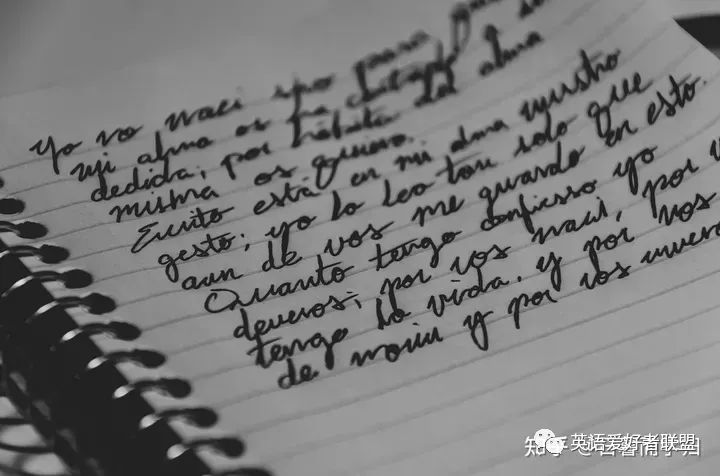 Yo no naci sino para
mi alma os ha cortado a su
dedida, por hábito del alma
misma os quiero.
Escrito está en mi alma vuestro
gesto; yo lo leo tan solo que
aun de vos me guardo en esto.
Quanto tengo confiesso yo
deveros; por vos naci, por
tengo la vida, y por vos
de morir y por vos muero
知乎
英语爱好者联盟